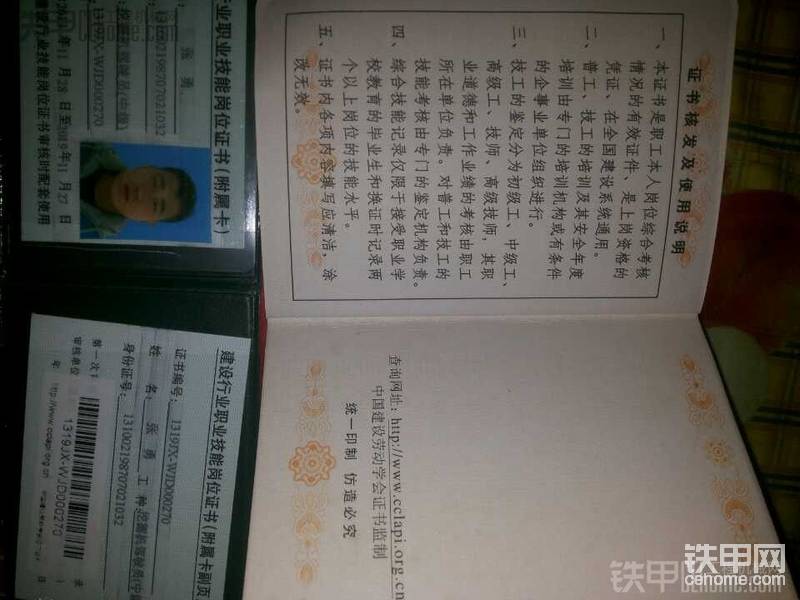 证书核发及使用说明
一、本证书是职工本人岗位综合考核
情况的有效证件、是上岗资格的
凭证、在全国建设系统通用。
二、普工、技工的培训及其安全年度
培训由专门的培训机构或有条件
的企事业单位组织进行。
三、技工的鉴定分为初级工、中级工、
高级工、技师、高级技师，其职
业道德和工作业绩的考核由职工
所在单位负责。对普工和技工的
技能考核由专门的鉴定机构负责。
四、综合技能记录仅限于接受职业学
校教育的毕业生和换证时记录两
个以上岗位的技能水平。
五、证书内各项内容填写应清洁，涂
改无效。
查询网址：http://www.cclapi.org.cn
中国建设劳动学会证书监制
统一印制 仿造必究
行业职业技能岗位证书(附属卡)
张 勇
131002198707021032
挖掘机驾驶员(中级)
1319JX-WJD000270
年11月28日至2019年11月27日
建设行业技能岗位证书审核时配套使用
建设行业职业技能岗位证书(附属卡副页
证书编号：1319JX-WJD000270
姓 名：张 勇 工种 挖掘机驾驶员(中级
身份证号：131002198707021032
第一次
审核单位
年
1319JX-WJD000270
http://www.cclapi.org.cn
日
铁甲网
cehome.com